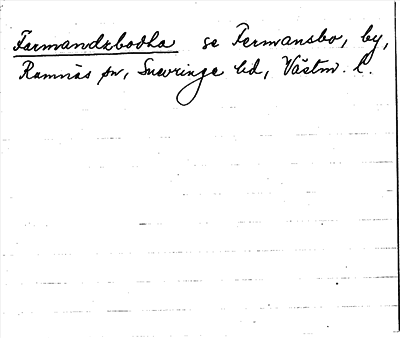 Farmandzbodha se Fermansbo, by,
Ramnäs sn, Snevringe hd, Västm. l.